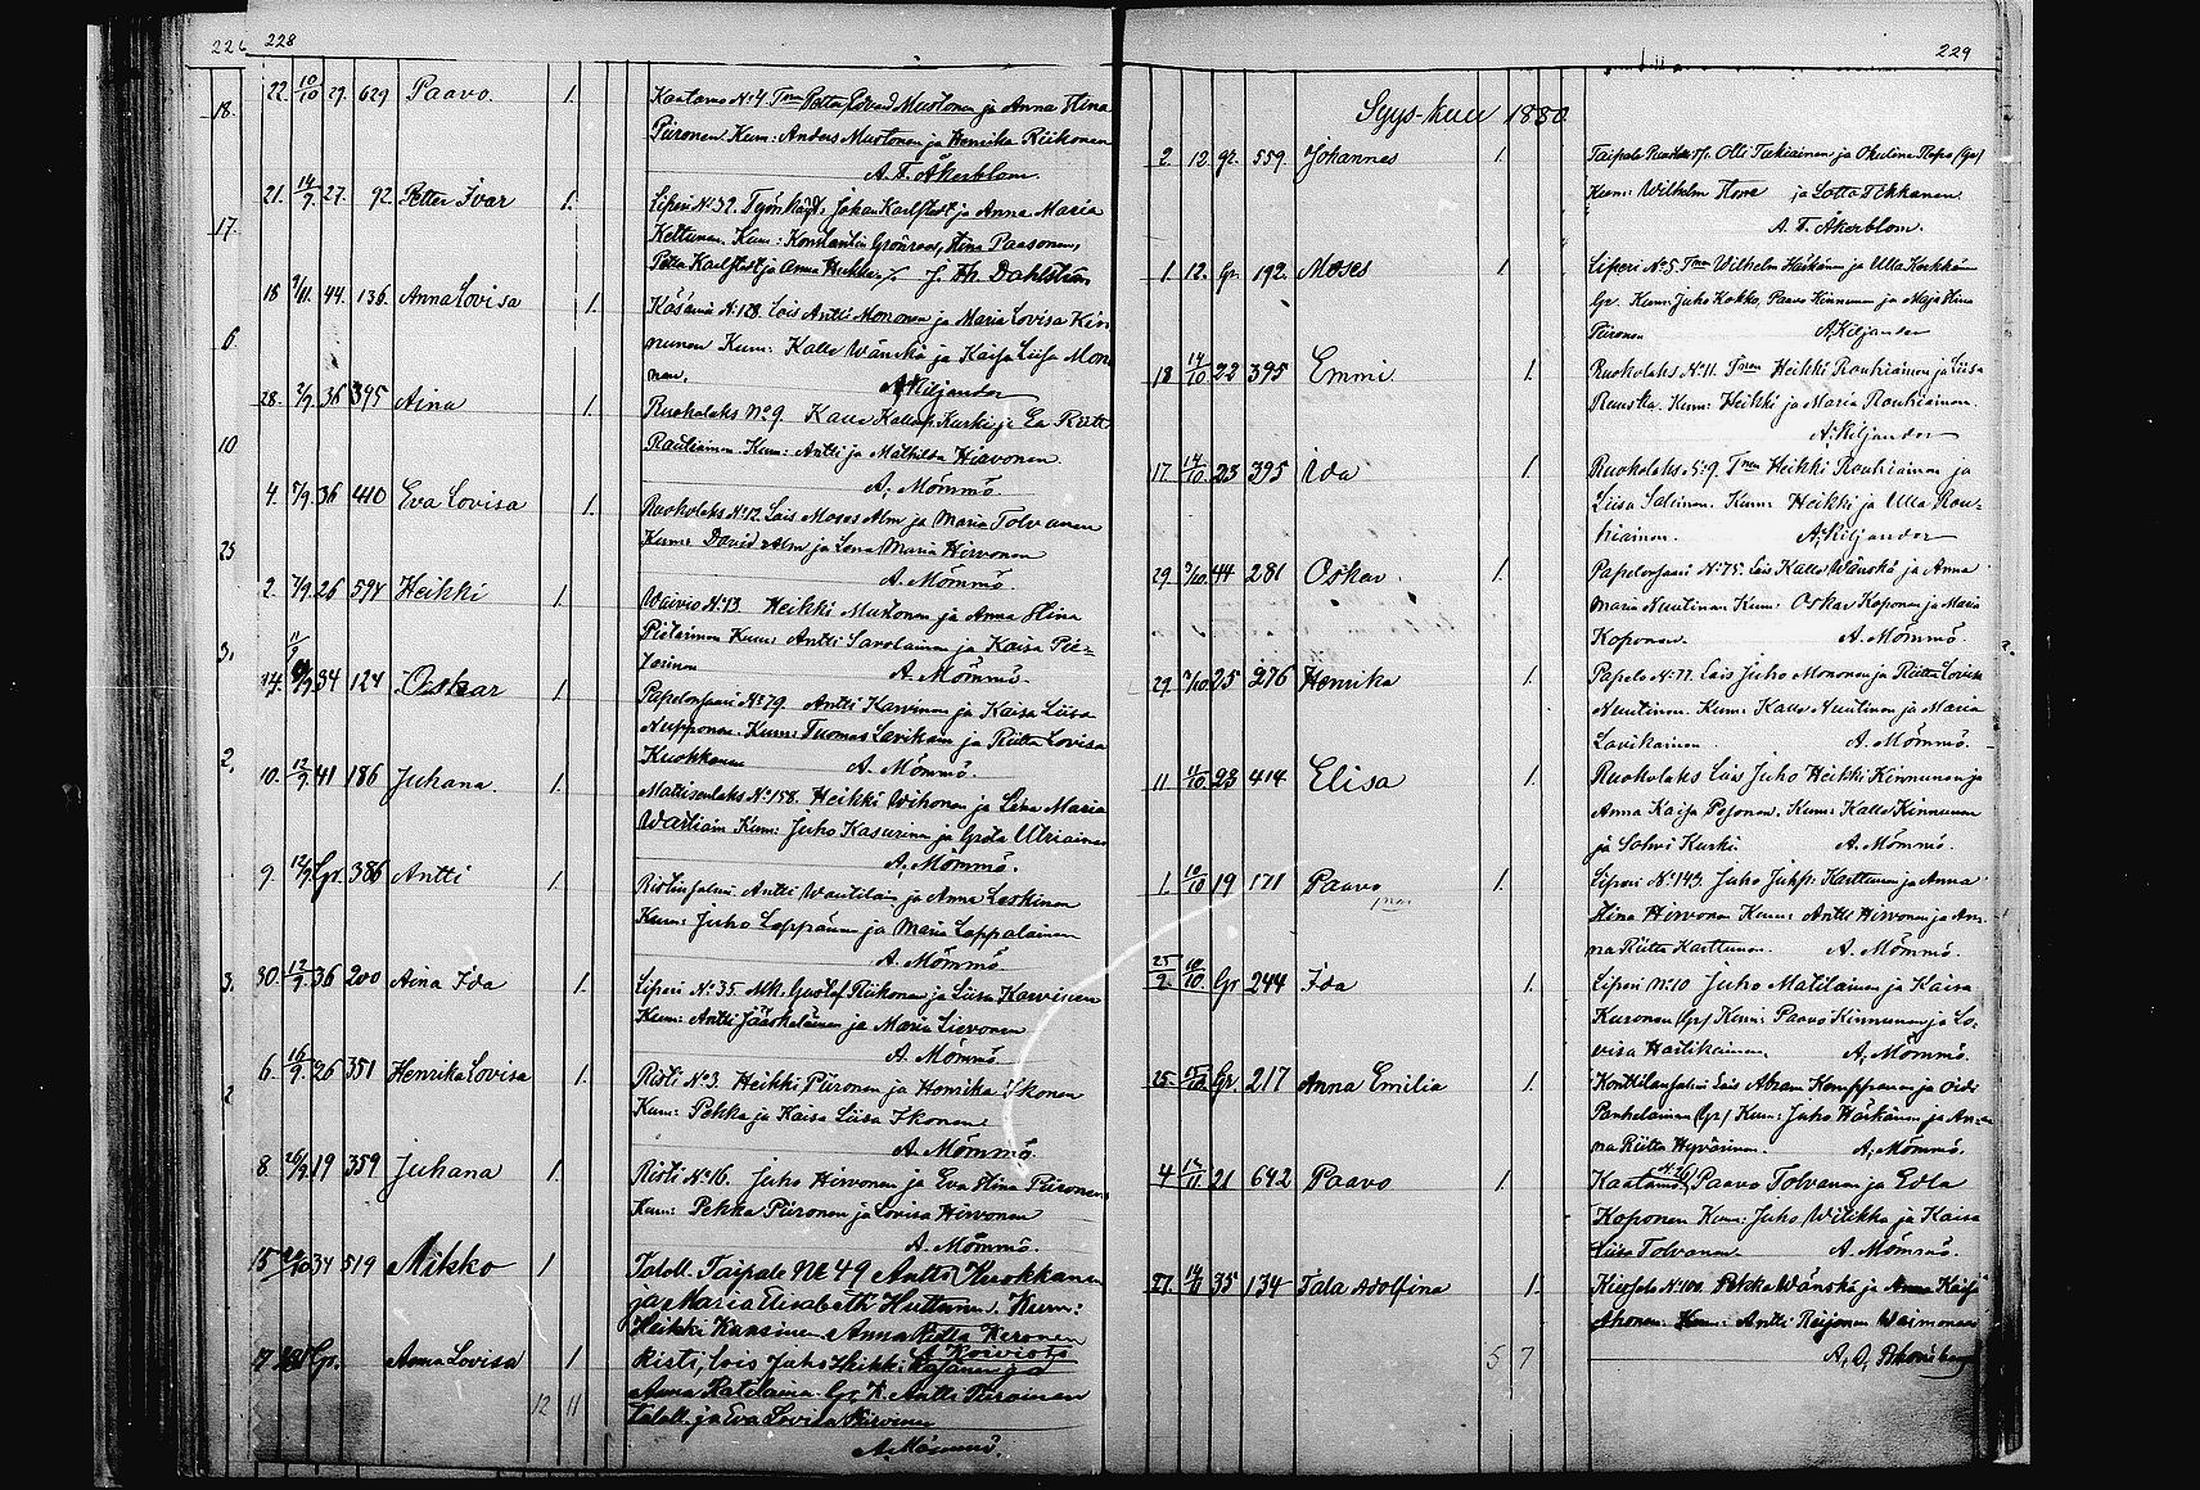 226 228
22. 10/10 29. 629 Paavo. 1. Kaatamo No 4. Tmn Petter Edvard Mustonen ja Anna Stina
18.
Piironen. Kum: Anders Mustonen ja Henrika Riikonen
A. F. Åkerblom.
21. 14/9. 27. 92. Petter Ivar 1. Liperi No 32. Johan Karlstedt ja Anna Maria
17.
Kettunen. Kum: Konstantin Grönroos, Stina Paasonen,
Petter Karlstedt ja Anna J. Th. Dahlström
18 7/11. 44. 136. Anna Lovisa 1. Käsämä N:128. Lois Antti Mononen ja Maria Lovisa Kin
6.
nunen Kum: Kalle Wänskä ja Kaisa Liisa Mono
nen. A. Kiljander
28. 2/9 36 395 Aina 1. Ruokolaks No 9. Kalle Kallep. Kurki ja Ea Riitt
10
Rautiainen. Kum: Antti ja Mathilda Hirvonen.
A. Mömmö.
4. 5/9. 36 410 Eva Lovisa 1. Ruokolaks No 12. Lois Moses Alm ja Maria Tolvanen
Kum: David Alm ja Lena Maria Hirvonen
25
A. Mömmö.
2. 7/9. 26 594 Heikki 1. Waivio No 13. Heikki Mustonen ja Anna Stina
Pietarinen Kum: Antti Savolainen ja Kaisa Pie=
3.
tarinen A. Mömmö.
11/9
14. 34 124 Oskar 1. Papelonsaari No 79 Antti Karvinen ja Kaisa Liisa
Nupponen. Kum: Tuomas Lavikain ja Riitta Lovisa
2.
Kuokkanen A. Mömmö.
10. 12/9. 41 186 Juhana. 1. Mattisenlaks No 158. Heikki Wihonen ja Lena Maria
Wartiain Kum: Juho Kasurinen ja Greta Utriainen
A. Mömmö.
9. 12/9. Gr. 386 Antti 1. Ristinsalmi. Antti Wautilain ja Anna Leskinen
Kum: Juho Leppänen ja Maria Lappalainen
A. Mömmö.
3.
30. 12/9. 36 200 Aina Ida 1. Liperi No 35. Mk. Gustaf Riikonen ja Liisa Karvinen
Kum: Antti Jääskeläinen ja Maria Lievonen
A. Mömmö.
6. 16/9. 26 351 Henrika Lovisa 1. Risti No 3. Heikki Piironen ja Henrika Ikonen
2
Kum: Pekka ja Kaisa Liisa Ikonen
A. Mömmö.
8. 26/9. 19 359 Juhana 1. Risti No 16. Juho Hirvonen ja Eva Stina Piironen
Kum: Pekka Piironen ja Lovisa Hirvonen
A. Mömmö.
15 34 519 Mikko 1 Taloll. Taipale No 49 Antti Kuokkanen
ja Maria Elisabeth Huttunen. Kum:
Heikki Kansinen Anna Riitta Keronen
A Koivisto
17 Gr. Anna Lovisa 1 Risti, lois Juho Heikki ja
Anna Ratilainen Gr. K. Antti Piiroinen
12 11
Taloll. ja Eva Lovisa
A. Mömmö.
229
Syys-kuu 1880
2. 12. gr. 559. Johannes 1. Taipale Olli Tukiainen ja Okulina (Gr)
Kum: Wilhelm ja Lotta Tikkanen.
A. F. Åkerblom.
1. 12. Gr. 192. Moses 1. Liperi No 5. Tmn Wilhelm Härkönen ja Ulla Korkkonen
Gr. Kum: Juho Kokko, Paavo Kinnunen ja Maja Stina
Piironen A. Kiljander
18 14/10 22 395 Emmi. 1. Ruokolaks No 11. Tmn Heikki Rouhiainen ja Liisa
Ruuska. Kum: Heikki ja Maria Rouhiainen.
A. Kiljander
17. 14/10. 23 395 Ida 1. Ruokolaks No 9. Tmn Heikki Rouhiainen ja
Liisa Salinen. Kum: Heikki ja Ulla Rou=
hiainen. A. Kiljander
29. 3/10. 44 281 Oskar. 1. Papelonsaari No 75. Lois Kalle Wänskä ja Anna
Maria Nuutinen Kum: Oskar Koponen ja Maria
Koponen. A. Mömmö.
29. 25 276 Henrika 1. Papelo No 77. Lois Juho Mononen ja Riitta Lovisa
Nuutinen. Kum: Kalle Nuutinen ja Maria
Lavikainen. A. Mömmö.
11 23 414 Elisa 1. Ruokolaks Lois Juho Heikki Kinnunen ja
Anna Kaisa Pesonen. Kum: Kalle Kinnunen
ja Sohvi Kurki. A. Mömmö.
1. 10/10 19 171 Paavo 1. Liperi No 143. Juho Juhp: Karttunen ja Anna
Stina Hirvonen Kum: Antti Hirvonen ja An-
na Riitta Karttunen. A. Mömmö.
25/9. 10/10. Gr 244 Ida 1. Liperi No 10 Juho Matilainen ja Kaisa
Kuronen (Gr) Kum: Paavo Kinnunen ja Lo-
visa Hartikainen. A. Mömmö.
25. 15/10 Gr. 217 Anna Emilia 1. Konttilansalmi Lois Abram Kemppanen ja
Penhelainen (Gr) Kum: Juho Härkönen ja An-
na Riitta Hyvärinen. A. Mömmö.
4 14/11. 21 642 Paavo 1. Kaatamo No 26 Paavo Tolvanen ja Edla
Koponen Kum: Juho Witikka ja Kaisa
Liisa Tolvanen. A. Mömmö.
27. 35 134 Tala Adolfina 1. No 100. Pekka Wänskä ja Anna Kaisa
Ahonen. Kum: Antti Reijonen
5 7